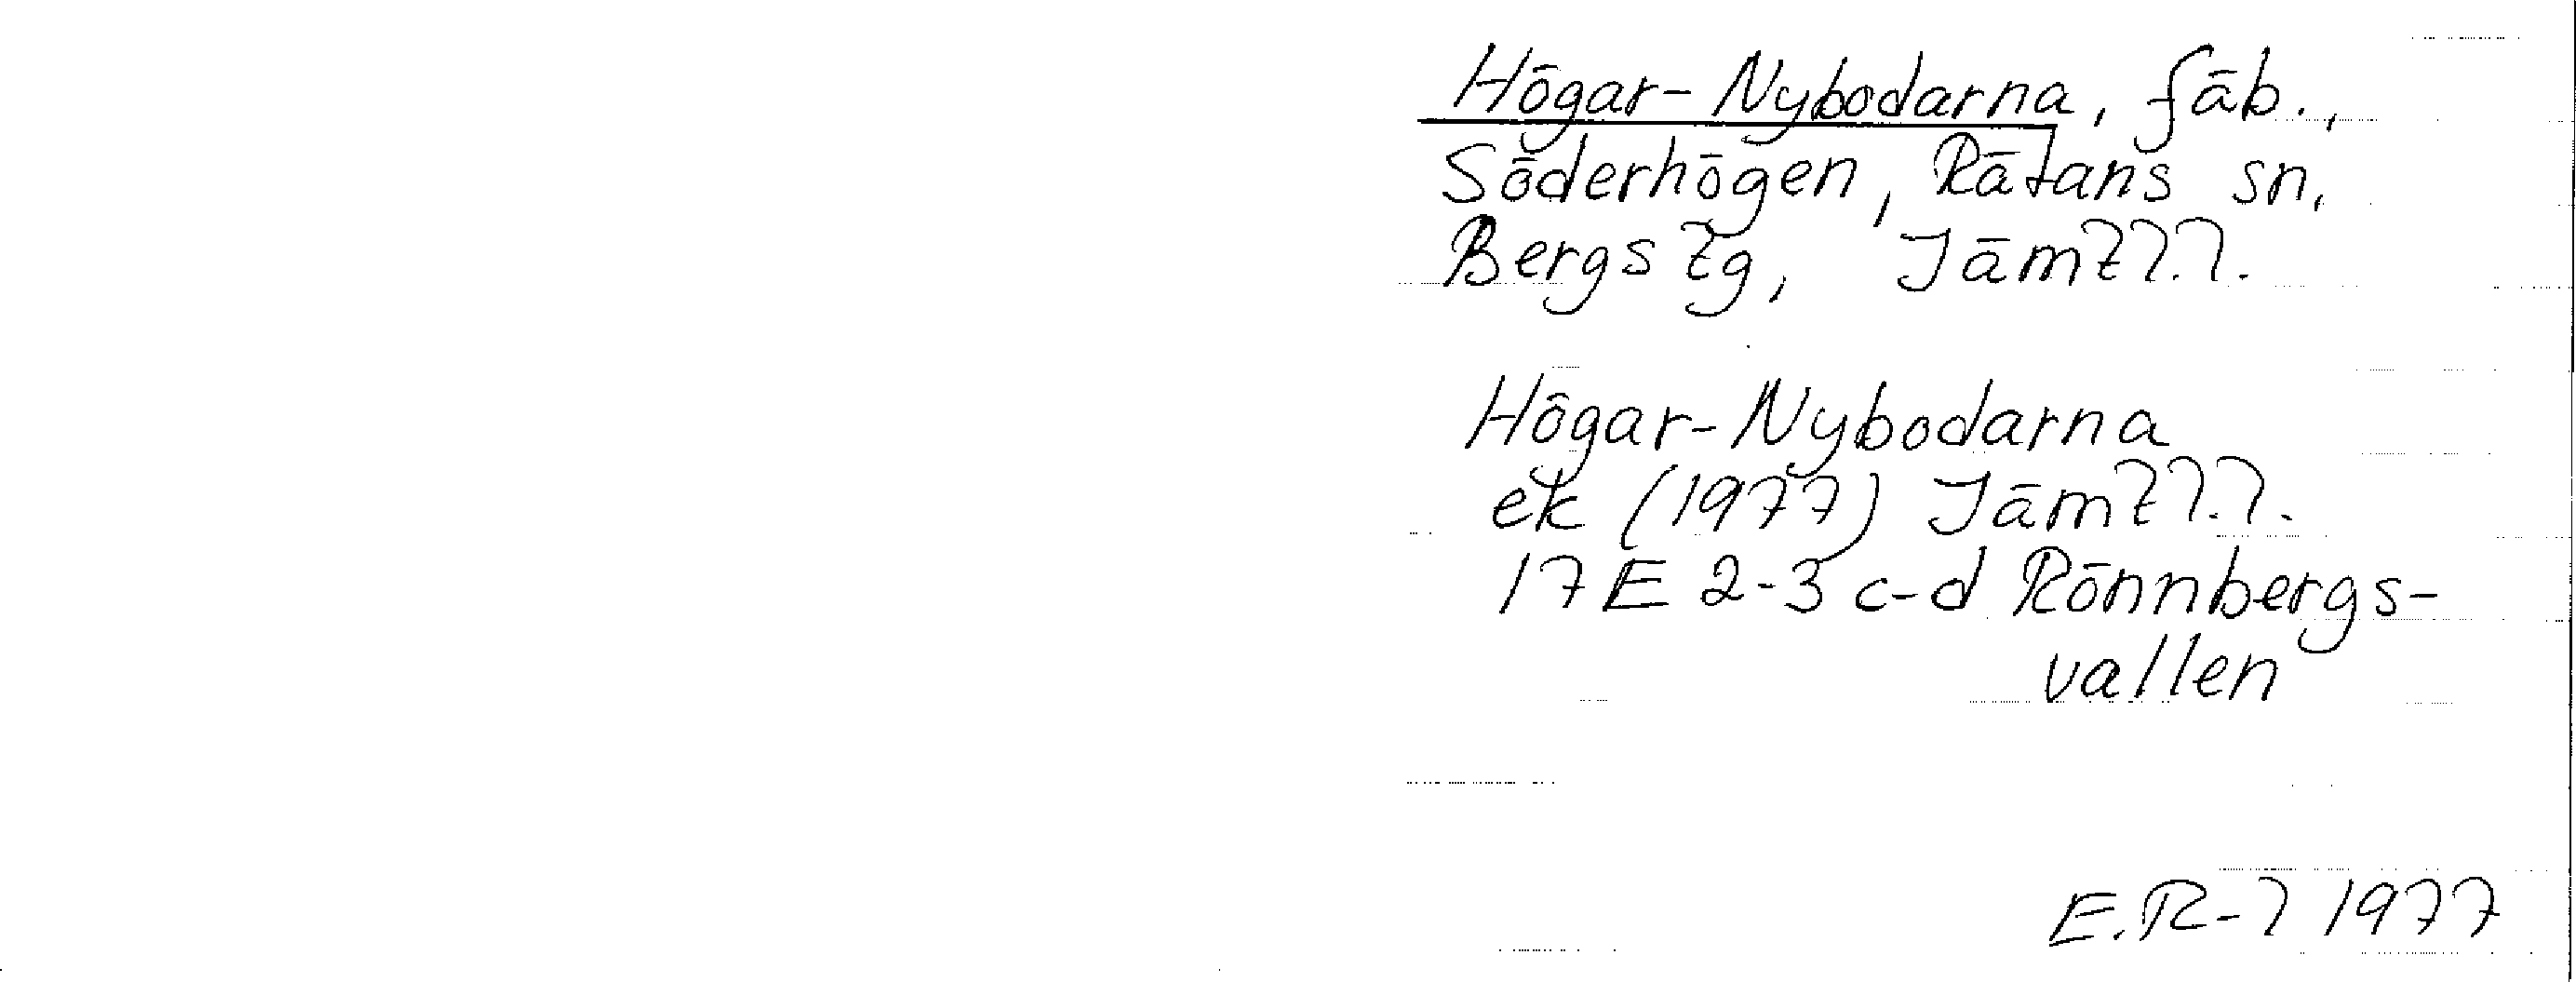 Högar-Nybodarna, fäb.,
Söderhögen, Rätans sn,
Bergs tg, Jämtl.l.
Högar-Nybodarna
ek (1977) Jämtl.l.
17E 2-3 c-d Rönnbergs-
vallen
E.R-l 1977